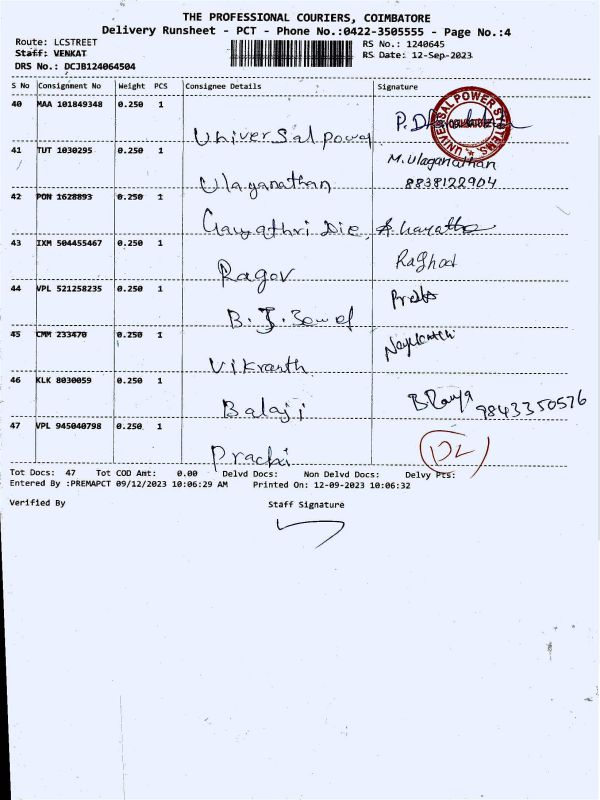 THE PROFESSIONAL COURIERS, COIMBATORE
Delivery Runsheet - PCT - Phone No.:0422-3505555 - Page No.:4
Route: LCSTREET RS No.: 1240645
Staff: VENKAT RS Date: 12-Sep-2023
DRS No.: DCJB124064504
S No Consignment No Weight PCS Consignee Details Signature
40 MAA 101849348 0.250 1 Universal power P.
UNIVERSAL POWER SYSTEMS COIMBATORE
41 TUT 1030295 0.250 1 Ulaganathan M. Ulaganathan
8838122904
42 PON 1628893 0.250 1 Gayathri Die
43 IXM 504455467 0.250 1 Ragov Raghod
44 VPL 521258235 0.250 1 B. J.
45 CMM 233470 0.250 1 Vikranth
46 KLK 8030059 0.250 1 Balaji 9843350576
47 VPL 945040798 0.250 1 Prachi DL
Tot Docs: 47 Tot COD Amt: 0.00 Delvd Docs: Non Delvd Docs: Delvy Pts:
Entered By :PREMAPCT 09/12/2023 10:06:29 AM Printed On: 12-09-2023 10:06:32
Verified By Staff Signature